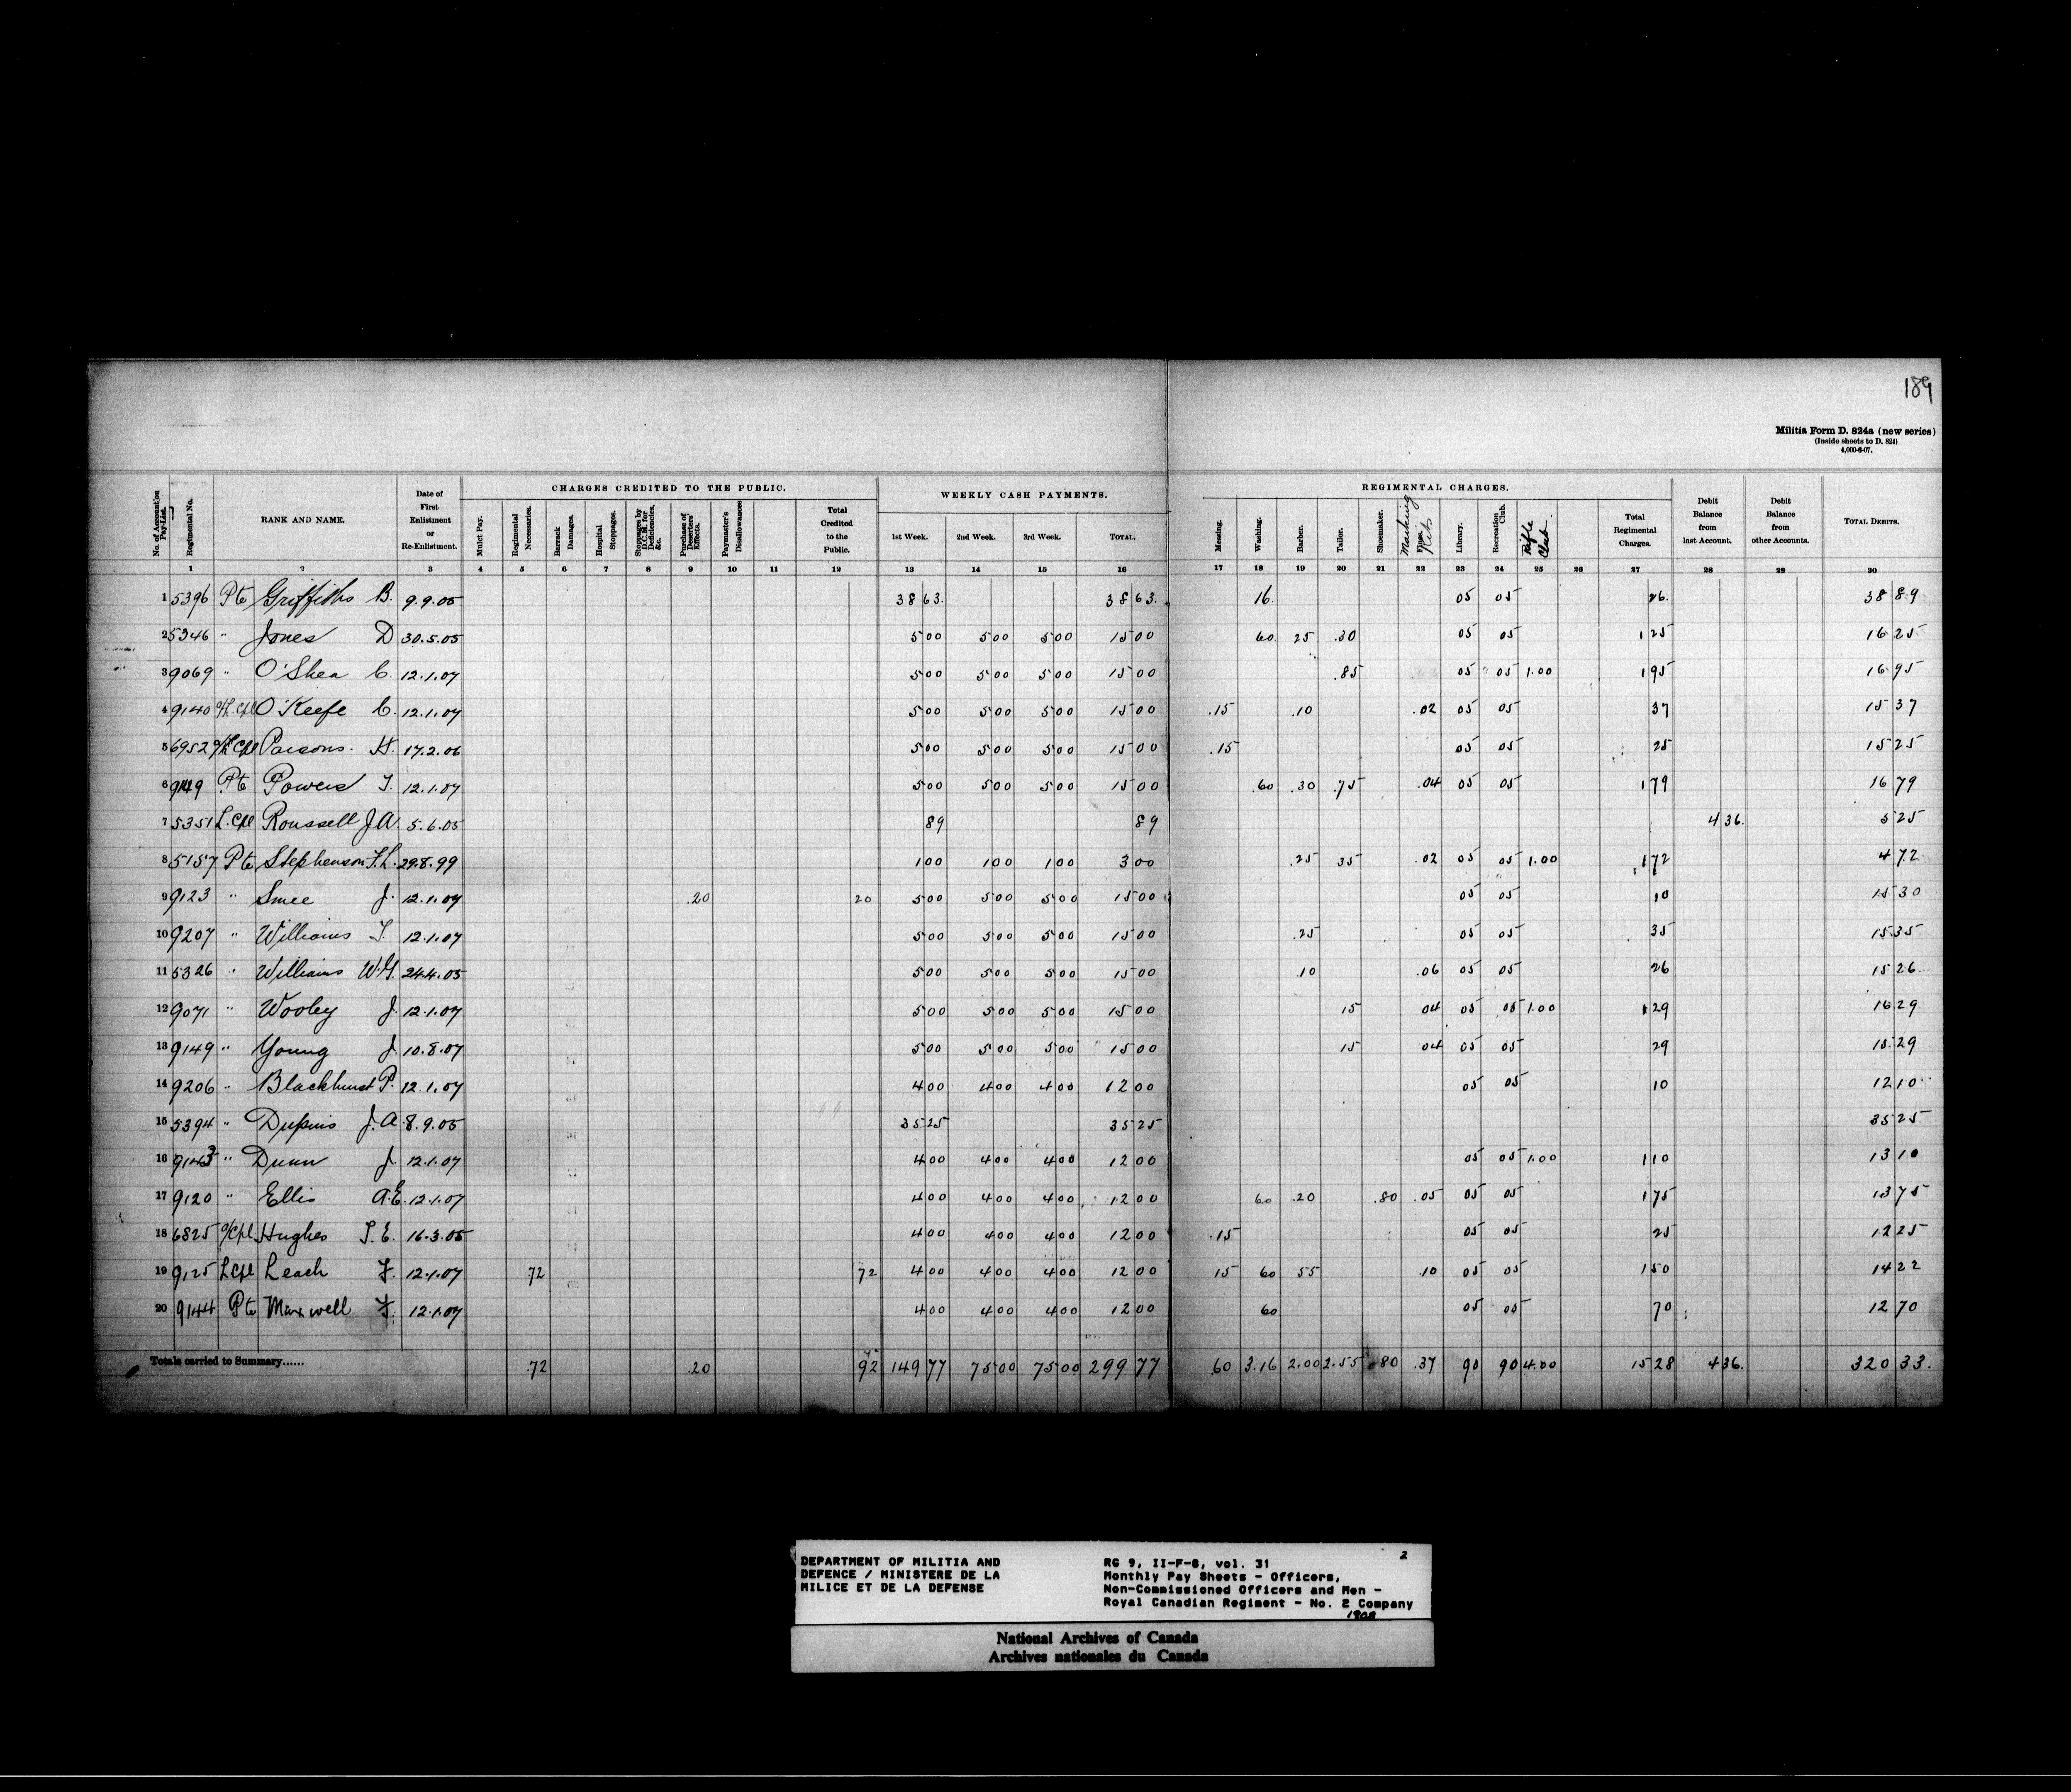 189
Militia Form D. 824a (new series)
(Inside sheets to D. 824)
4,000-6-07.
CHARGES CREDITED TO THE PUBLIC. WEEKLY CASH PAYMENTS. REGIMENTAL CHARGES.
No. of Account on Pay-List. Regimental No. RANK AND NAME. Date of First Enlistment or Re-Enlistment. Mulct Pay. Regimental Necessaries. Barrack Damages. Hospital Stoppages. Stoppages by D.C.M. for Deficiencies, &c. Purchase of Deserters' Effects. Paymaster's Disallowances Total Credited to the Public. 1st Week. 2nd Week. 3rd Week. TOTAL. Messing. Washing. Barber. Tailor. Shoemaker. Marking Kits Library. Recreation Club. Rifle Club. Total Regimental Charges. Debit Balance from last Account. Debit Balance from other Accounts. TOTAL DEBITS.
1 2 3 4 5 6 7 8 9 10 11 12 13 14 15 16 17 18 19 20 21 22 23 24 25 26 27 28 29 30
1 5396 Pte Griffiths B. 9.9.05 38 63. 38 63. 16. 05 05 26. 38 89
2 5346 " Jones D 30.5.05 5 00 5 00 5 00 15 00 60 25 .30 05 05 1 25 16 25
3 9069 " O'Shea C. 12.1.07 5 00 5 00 5 00 15 00 .85 05 05 1.00 1 95 16 95
4 9140 a/L.Cpl O'Keefe C. 12.1.07 5 00 5 00 5 00 15 00 .15 .10 .02 05 05 37 15 37
5 6952 a/L Cpl Parsons. H. 17.2.06 5 00 5 00 5 00 15 00 .15 05 05 25 15 25
6 9119 Pte Powers T. 12.1.07 5 00 5 00 5 00 15 00 .60 .30 .75 .04 05 05 1 79 16 79
7 5351 L.Cpl Roussell J.A. 5.6.05 89 89 4 36. 5 25
8 5157 Pte Stephenson F.L. 29.8.99 1 00 1 00 1 00 3 00 .25 35 .02 05 05 1.00 1 72 4 72
9 9123 " Smee J. 12.1.07 .20 20 5 00 5 00 5 00 15 00 05 05 10 15 30
10 9207 " Williams T. 12.1.07 5 00 5 00 5 00 15 00 .25 05 05 35 15 35
11 5326 " Williams W.G. 24.4.05 5 00 5 00 5 00 15 00 .10 .06 05 05 26 15 26
12 9071 " Wooley J. 12.1.07 5 00 5 00 5 00 15 00 15 04 05 05 1.00 1 29 16 29
13 9149 " Young J. 10.8.07 5 00 5 00 5 00 15 00 15 04 05 05 29 15 29
14 9206 " Blackhurst P. 12.1.07 4 00 4 00 4 00 12 00 05 05 10 12 10
15 5394 " Dupuis J.A. 8.9.05 35 25 35 25 35 25
16 9143 " Dunn J. 12.1.07 4 00 4 00 4 00 12 00 05 05 1.00 1 10 13 10
17 9120 " Ellis A.E. 12.1.07 4 00 4 00 4 00 12 00 60 .20 .80 .05 05 05 1 75 13 75
18 6825 a/Cpl Hughes T.E. 16.3.05 4 00 4 00 4 00 12 00 .15 05 05 25 12 25
19 9125 L Cpl Leach F. 12.1.07 .72 72 4 00 4 00 4 00 12 00 15 60 55 .10 05 05 1 50 14 22
20 9144 Pte Maxwell F. 12.1.07 4 00 4 00 4 00 12 00 60 05 05 70 12 70
Totals carried to Summary...... .72 .20 92 149 77 75 00 75 00 299 77 60 3.16 2.00 2.55 80 .37 90 90 4.00 15 28 4 36. 320 33.
2
DEPARTMENT OF MILITIA AND
DEFENCE / MINISTERE DE LA
MILICE ET DE LA DEFENSE
RG 9, II-F-8, vol. 31
Monthly Pay Sheets - Officers,
Non-Commissioned Officers and Men -
Royal Canadian Regiment - No. 2 Company
1908
National Archives of Canada
Archives nationales du Canada